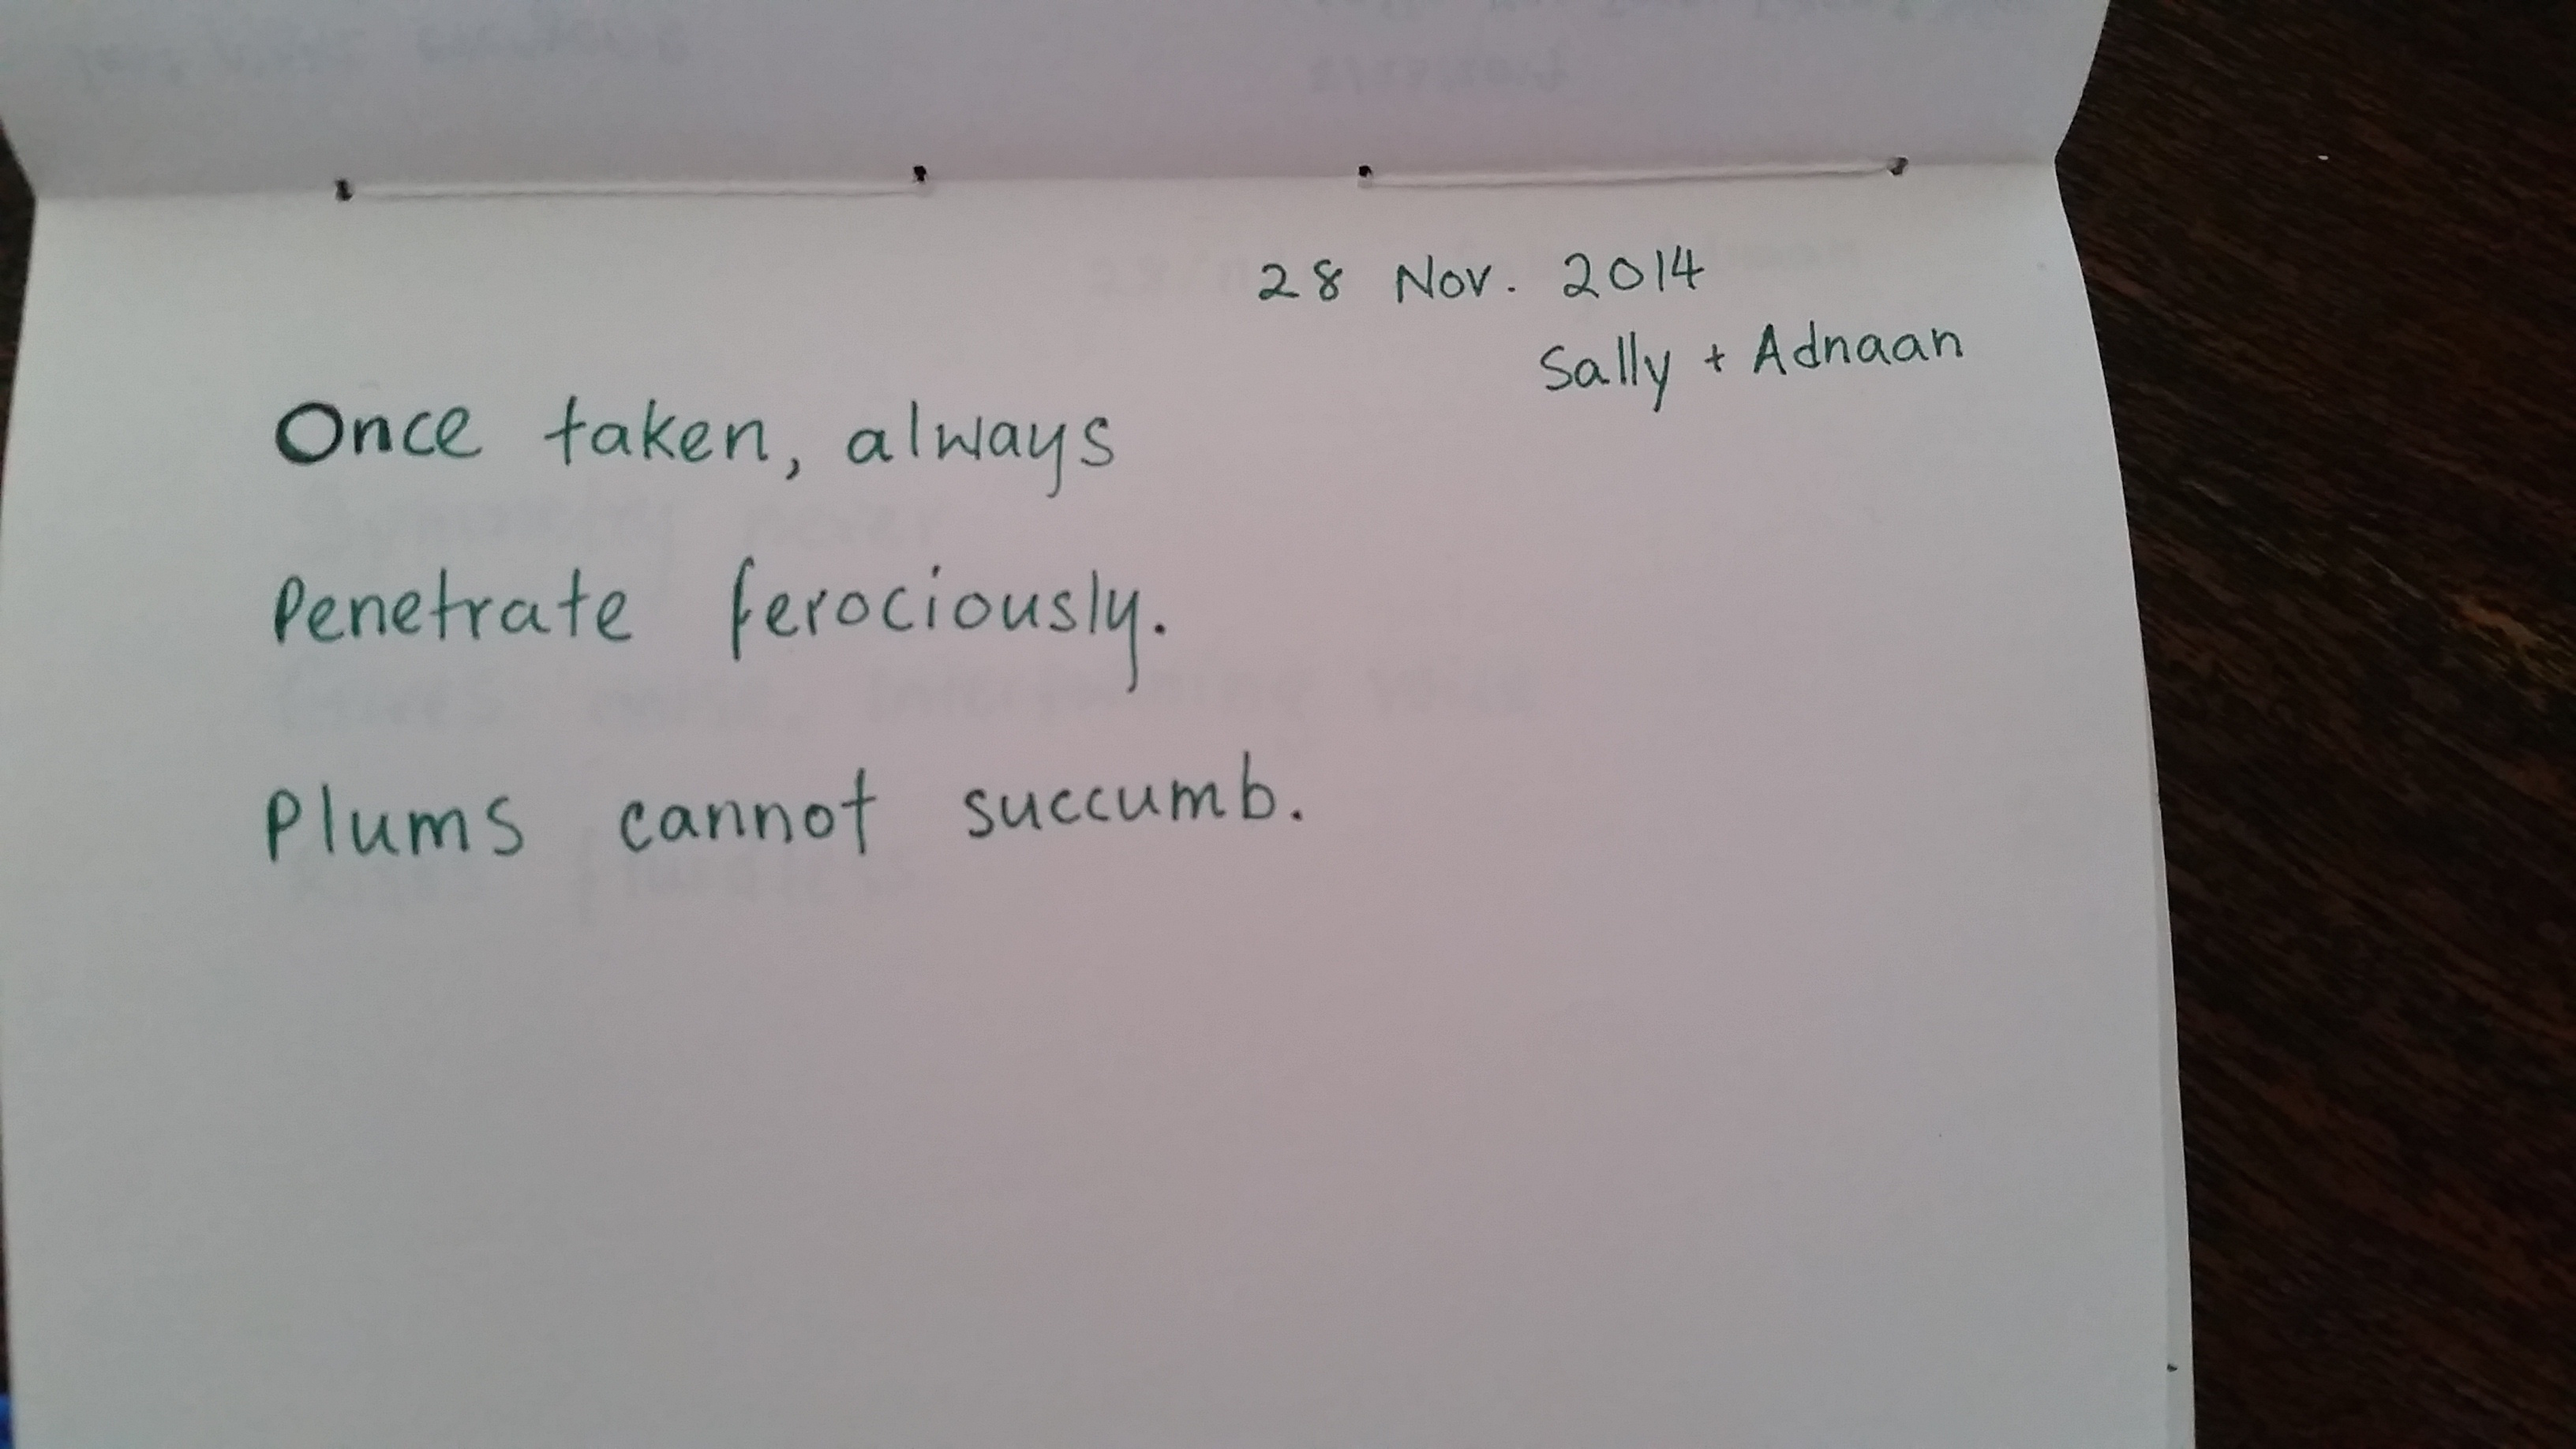 28 Nov. 2014
Sally + Adnaan
Once taken, always
Penetrate ferociously.
Plums cannot succumb.